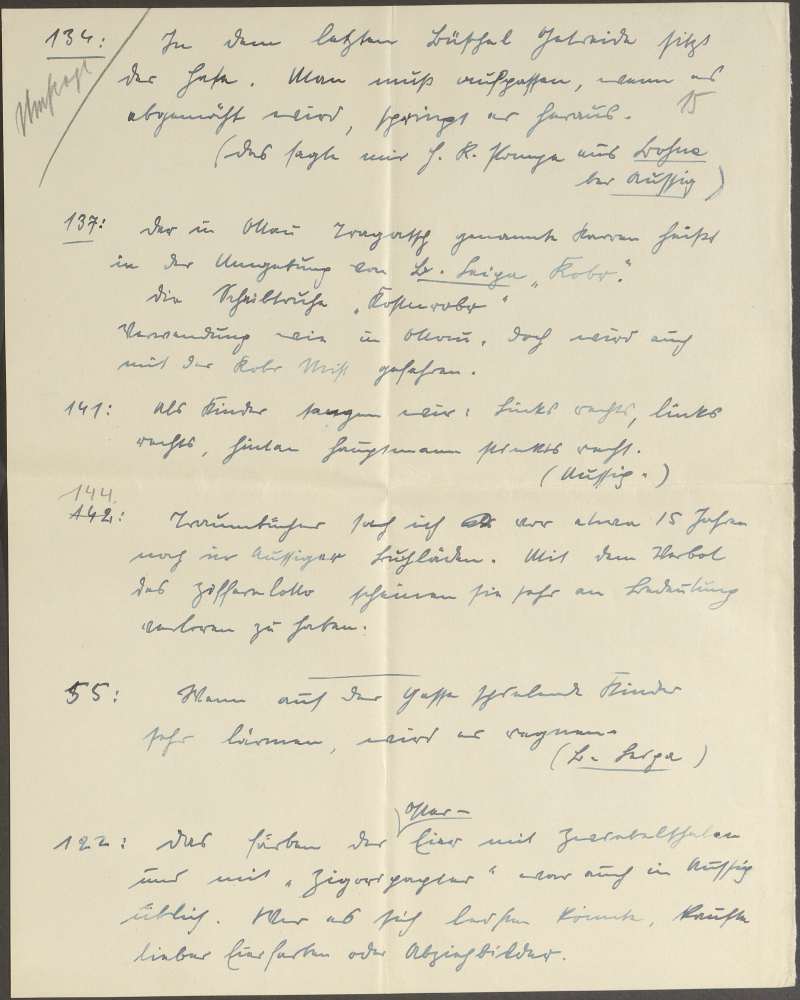 134: In dem letzten Büschel Getreide sitzt
der Hase. Man muß aufpassen, wenn es
abgemäht wird, springt er heraus. 15
(das sagte mir H. K. aus Bohna
bei Aussig)
137: Der in Ollau Tragatsch genannte Karren heißt
in der Umgebung von B. Leipa "Robr".
die Scheibtruhe "Kostnrobr"
Verwendung wie in Ollau, doch wird auch
mit der Robr Mist gefahren.
141: Als Kinder sangen wir: Links rechts, links
rechts, hinten Hauptmann stinkts recht.
(Aussig.)
144.
142: Traumbücher sah ich vor etwa 15 Jahren
noch in Aussiger Buchläden. Mit dem Verbot
des Zifferlotto scheinen sie sehr an Bedeutung
verloren zu haben.
55: Wenn auf der Gasse spielende Kinder
sehr lärmen, wird es regnen.
(B. Leipa)
Oster-
122: Das Färben der Eier mit Zwiebelschalen
und mit "Zigoripapier" war auch in Aussig
üblich. Wer es sich leisten konnte, kaufte
lieber Eierfarben oder Abziehbilder.